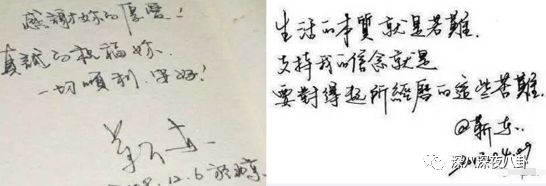 感謝妳的厚愛!
真誠的祝福妳.
一切順利.安好!
靳东
12.6於北京
生活的本質就是苦難.
支持我的信念就是
要對得起所經歷的這些苦難.
@靳东
深八深夜八卦